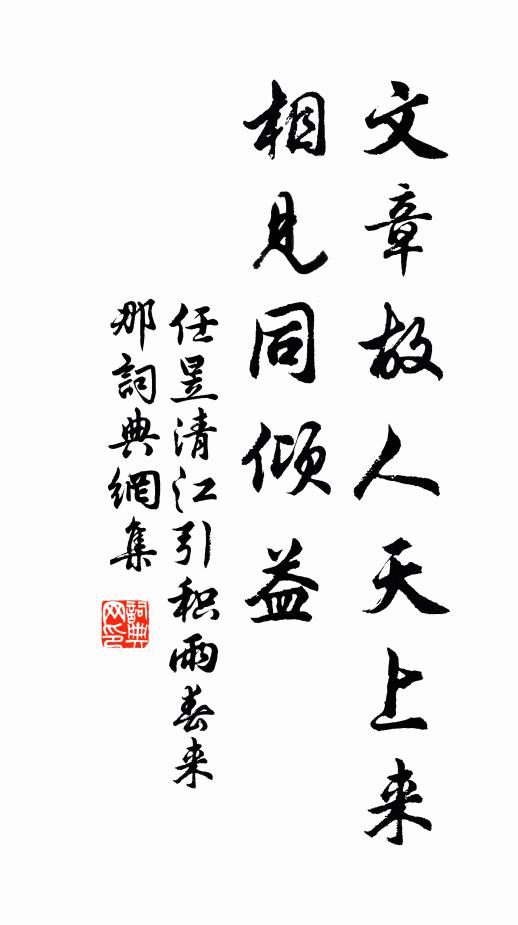 文章故人天上来
相见同倾益
任昱清江引积雨春来
那词典網集
詞典网印